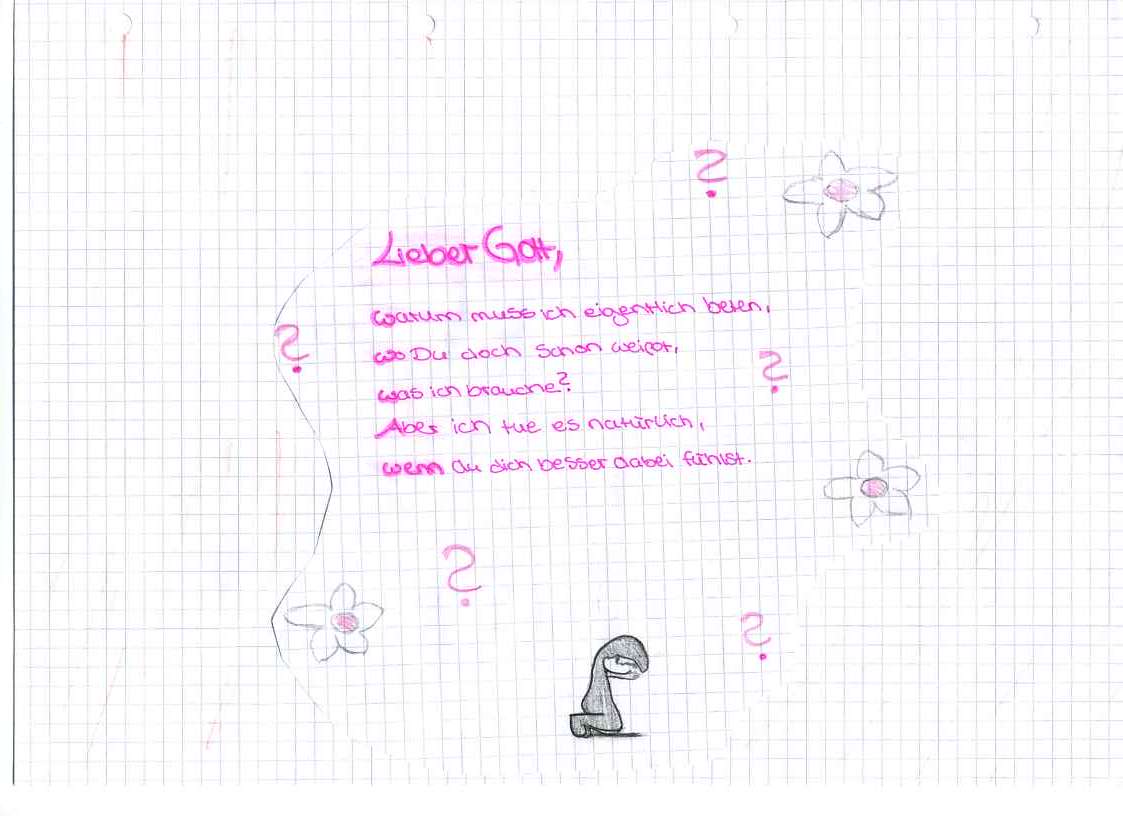 Lieber Gott,
warum muss ich eigentlich beten,
wo Du doch schon weißt,
was ich brauche?
Aber ich tue es natürlich,
wenn du dich besser dabei fühlst.